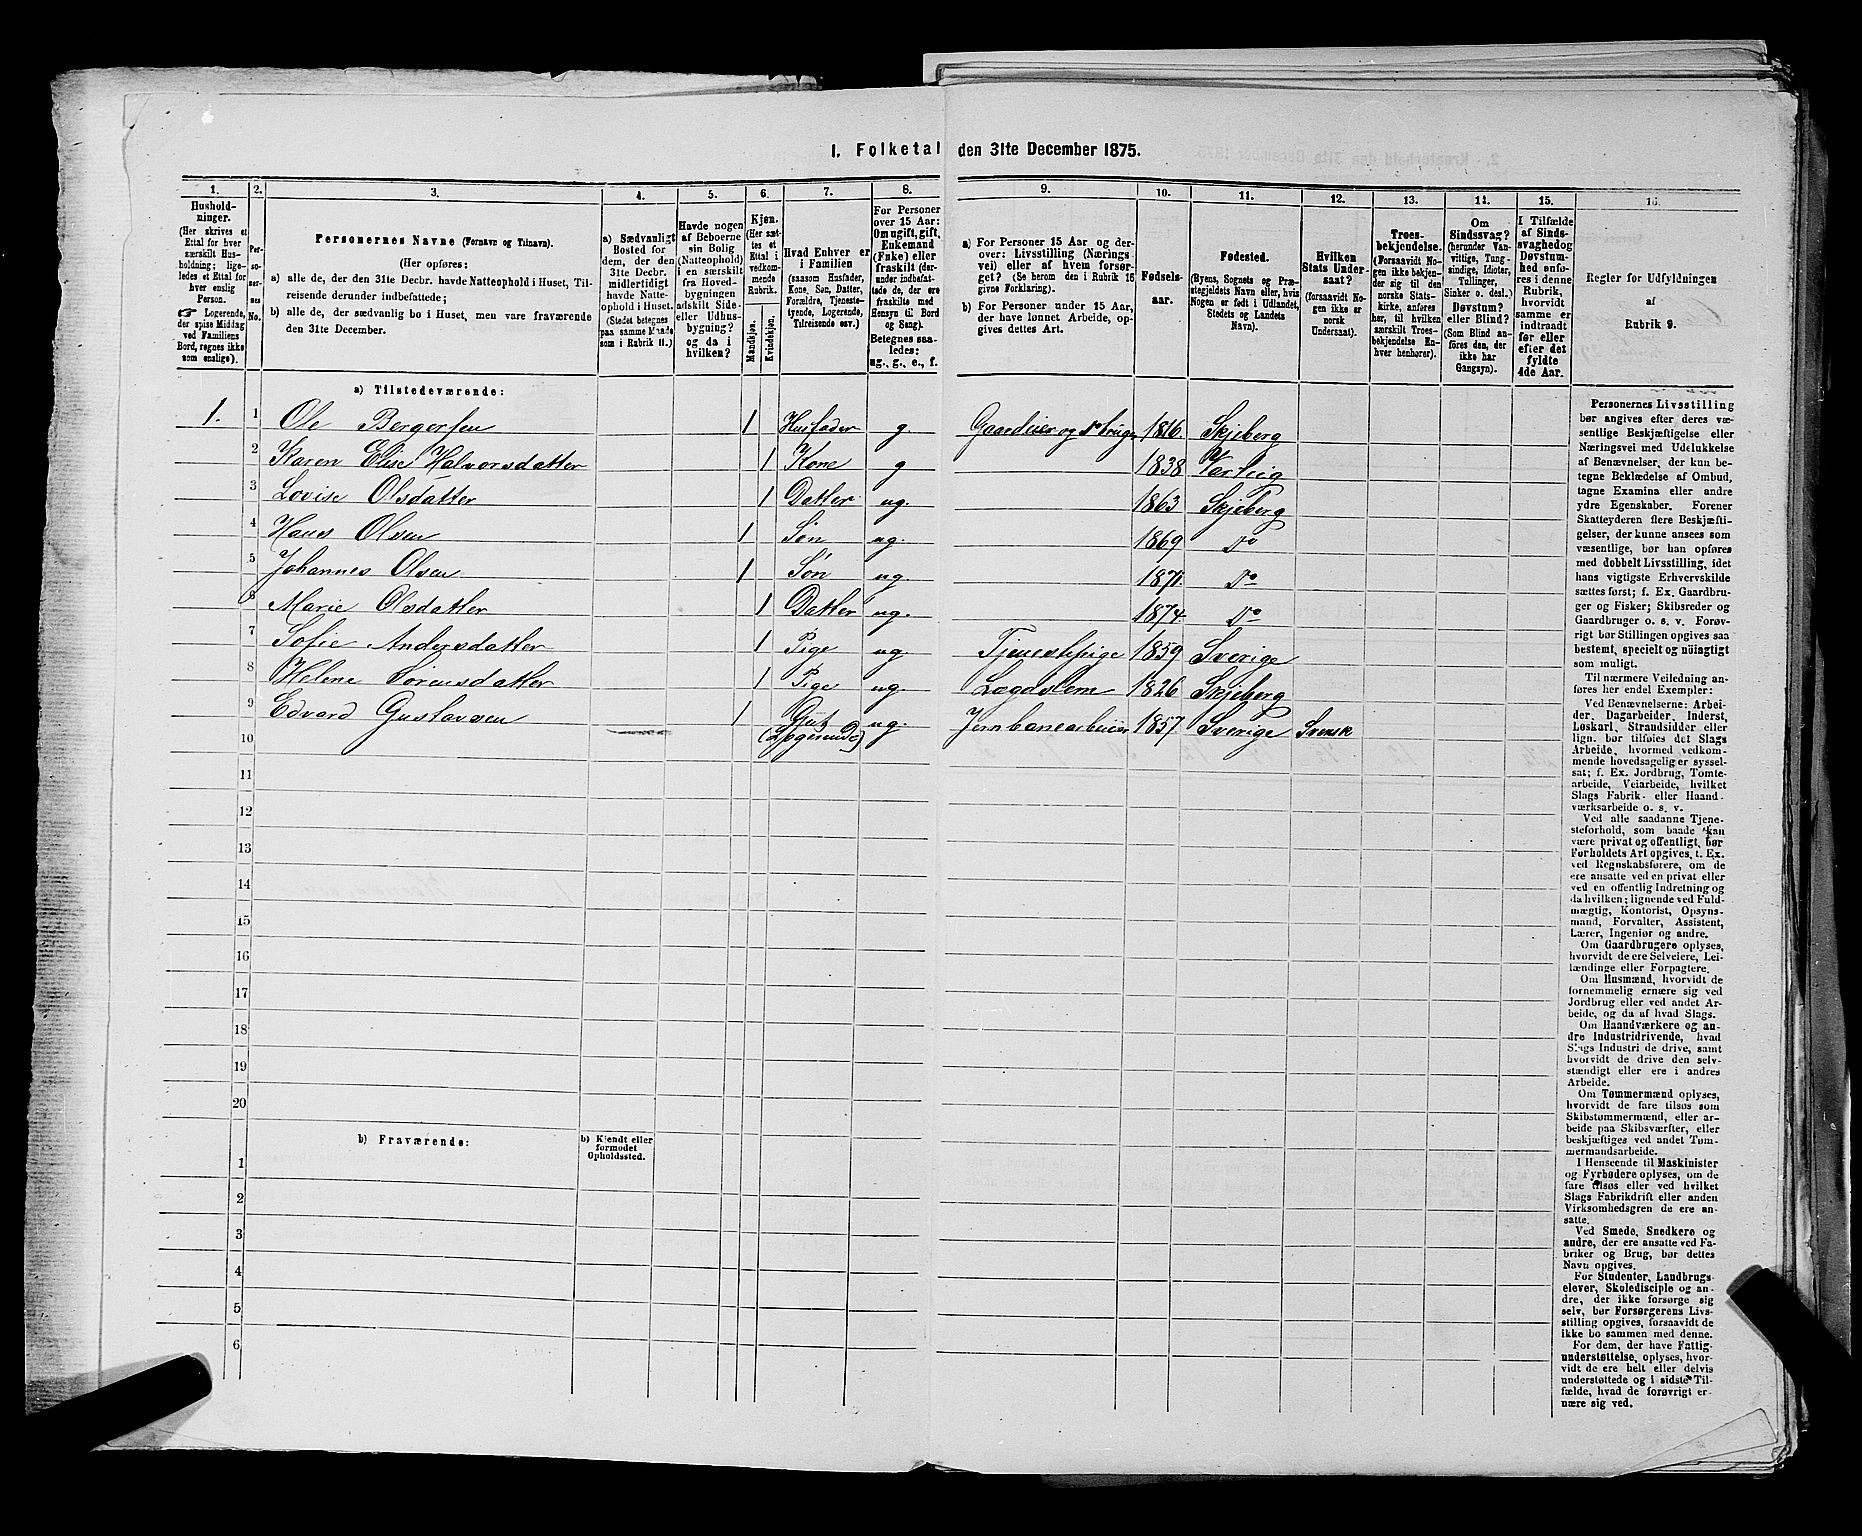 1. Folketal den 31te December 1875.
1. 2. 3. 4. 5. 6. 7. 8. 9. 10. 11. 12. 13. 14. 15. 16.
Hushold-
ninger.
(Her skrives et
Ettal for hver
særskilt Hus-
holdning; lige-
ledes et Ettal for
hver enslig
Person.
☞ Logerende,
der spise Middag
ved Familiens
Bord, regnes ikke
som enslige).
Per-
so-
ner-
nes
No.
Personernes Navne (Fornavn og Tilnavn).
(Her opføres:
a) alle de, der den 31te Decbr. havde Natteophold i Huset, Til-
reisende derunder indbefattede;
b) alle de, der sædvanlig bo i Huset, men vare fraværende
den 31te December.
a) Sædvanligt
Bosted for
dem, der den
31te Decbr.
midlertidigt
havde Natte-
ophold i Huset.
(Stedet betegnes
paa samme Maade
som i Rubrik 11.)
Havde nogen
af Beboerne
sin Bolig
(Natteophold)
i en særskilt
fra Hoved-
bygningen
adskilt Side-
eller Udhus-
bygning?
og da i
hvilken?
Kjøn.
(Her sæt-
tes et
Ettal i
vedkom-
mende
Rubrik.
Mandkjøn.
Kvindekjøn.
Hvad Enhver er
i Familien
(saasom Husfader,
Kone, Søn, Datter,
Forældre, Tjeneste-
tyende, Logerende,
Tilreisende osv.)
For Personer
over 15 Aar:
Om ugift, gift,
Enkemand
(Enke) eller
fraskilt (der-
under indbefat-
tede de, der ere
fraskilte med
Hensyn til Bord
og Seng).
Betegnes saa-
ledes:
ug., g., e., f.
a) For Personer 15 Aar og der-
over: Livsstilling (Nærings-
vei) eller af hvem forsør-
get? (Se herom den i Rubrik 16
givne Forklaring).
b) For Personer under 15 Aar,
der have lønnet Arbeide, op-
gives dettes Art.
Fødsels-
aar.
Fødested.
(Byens, Sognets og Præ-
stegjeldets Navn eller, hvis
Nogen er født i Udlandet,
Stedets og Landets
Navn).
Hvilken
Stats Under-
saat?
(forsaavidt No-
gen ikke er
norsk
Undersaat).
Troes-
bekjendelse.
(Forsaavidt No-
gen ikke bekjen-
der sig til den
norske Stats-
kirke, anføres
her, til hvilken
særskilt Troes-
bekjendelse En-
hver henhører).
Om
Sindssvag?
(herunder Van-
vittige, Tung-
sindige, Idioter,
Tullinger,
Sinker o. desl.)
Døvstum?
eller Blind?
(Som Blind an-
føres den, der
ikke har
Gangsyn).
I Tilfælde
af Sinds-
svaghed og
Døvstum-
hed anfø-
res i denne
Rubrik,
hvorvidt
samme er
indtraadt
før eller
efter det
fyldte
4de Aar.
Regler for Udfyldningen
af
Rubrik 9.
a) Tilstedeværende:
1. 1 Ole Bergersen 1 Husfader g. Gaardeier og do bruger 1816. Skjeberg
2 Karen Elise Halvorsdatter 1 Kone g 1838 Varteig
3 Lovise Olsdatter 1 Datter ug. 1863 Skjeberg
4 Hans Olsen 1 Søn ug. 1869 do
5 Johannes Olsen 1 Søn ug. 1871. do
6 Marie Olsdatter 1 Datter ug. 1874. do
7 Sofie Andersdatter 1 Pige ug. Tjenestepige 1859 Sverige
8 Helene Sørensdatter 1 Pige ug. Lægdslem 1826 Skjeberg
9 Edvard Gustavsen 1 Gut ug. Jernbanearbeider 1857 Sverige Svensk
10 (Logerende)
11
12
13
14
15
16
17
18
19
20
b) Fraværende:
b) Kjendt eller
formodet
Opholdssted.
1
2
3
4
5
6
Personernes Livsstilling
bør angives efter deres væ-
sentlige Beskjæftigelse eller
Næringsvei med Udelukkelse
af Benævnelser, der kun be-
tegne Beklædelse af Ombud,
tagne Examina eller andre
ydre Egenskaber. Forener
Skatteyderen flere Beskjæfti-
gelser, der kunne ansees som
væsentlige, bør han opføres
med dobbelt Livsstilling, idet
hans vigtigste Erhvervskilde
sættes først; f. Ex. Gaardbru-
ger og Fisker; Skibsreder og
Gaardbruger o. s. v. Forøv-
rigt bør Stillingen opgives saa
bestemt, specielt og nøiagtigt
som muligt.
Til nærmere Veiledning an-
føres her endel Exempler:
Ved Benævnelserne: Arbei-
der, Dagarbeider, Inderst,
Løskarl, Strandsidder eller
lign. bør tilføies det Slags
Arbeide, hvormed vedkom-
mende hovedsagelig er syssel-
sat; f. Ex. Jordbrug, Tomte-
arbeide, Veiarbeide, hvilket
Slags Fabrik- eller Haand-
værksarbeide o. s. v.
Ved alle saadanne Tjene-
steforhold, som baade kan
være privat og offentligt, bør
Forholdets Art opgives, t. Ex.
ved Regnskabsførere, om de
ere ansatte ved en privat eller
ved en offentlig Indretning og
da hvilken; lignende ved Fuld-
mægtig, Kontorist, Opsyns-
mand, Forvalter, Assistent,
Lærer, Ingeniør og andre.
Om Gaardbrugere oplyses,
hvorvidt de ere Selveiere, Lei-
lændinge eller Forpagtere.
Om Husmænd, hvorvidt de
fornemmelig ernære sig ved
Jordbrug eller ved andet Ar-
beide, og da af hvad Slags.
Om Haandværkere og an-
dre Industridrivende, hvad
Slags Industri de drive, samt
hvorvidt de drive den selv-
stændigt eller ere i andres
Arbeide.
Om Tømmermænd oplyses,
hvorvidt de fare tilsøs som
Skibstømmermænd, eller ar-
beide paa Skibsværfter, eller
beskjæftiges ved andet Tøm-
mermandsarbeide.
I Henseende til Maskinister
og Fyrbødere oplyses, om de
fare tilsøs eller ved hvilket
Slags Fabrikdrift eller anden
Virksomhedsgren de ere an-
satte.
Ved Smede, Snedkere og
andre, der ere ansatte ved Fa-
briker og Brug, bør dettes
Navn opgives.
For Studenter, Landbrugs-
elever, Skoledisciple og an-
dre, der ikke forsørge sig
selv, bør Forsørgerens Livs-
stilling opgives, forsaavidt de
ikke bo sammen med denne.
For dem, der have Fattig-
understøttelse, oplyses, hvor-
vidt de ere helt eller delvis
understøttede og i sidste Til-
fælde, hvad de forøvrigt er-
nære sig ved.